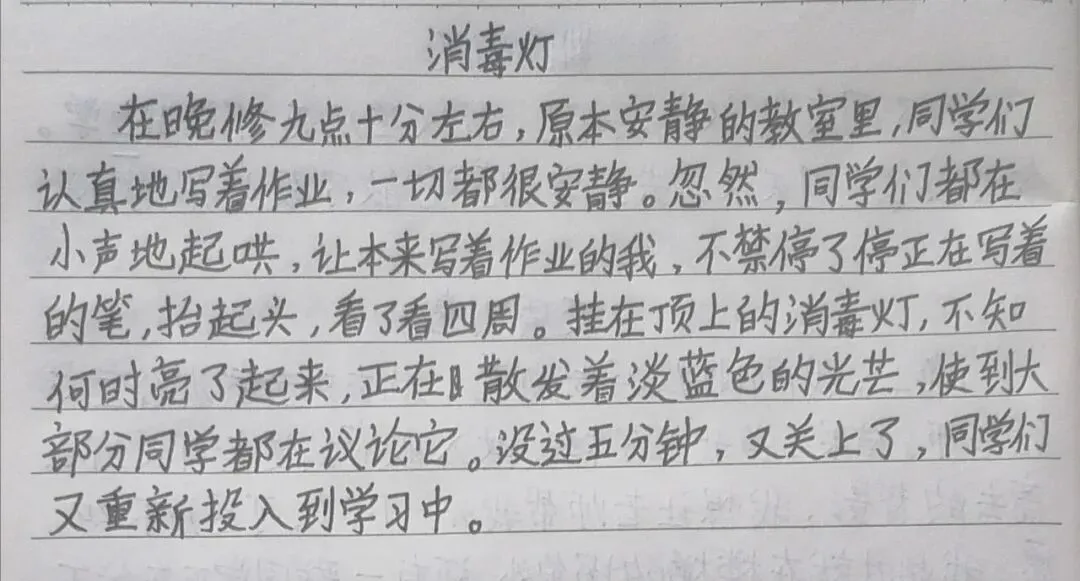 消毒灯
在晚修九点十分左右,原本安静的教室里,同学们
认真地写着作业,一切都很安静。忽然,同学们都在
小声地起哄,让本来写着作业的我,不禁停了停正在写着
的笔,抬起头,看了看四周。挂在顶上的消毒灯,不知
何时亮了起来,正在散发着淡蓝色的光芒,使到大
部分同学都在议论它。没过五分钟,又关上了,同学们
又重新投入到学习中。